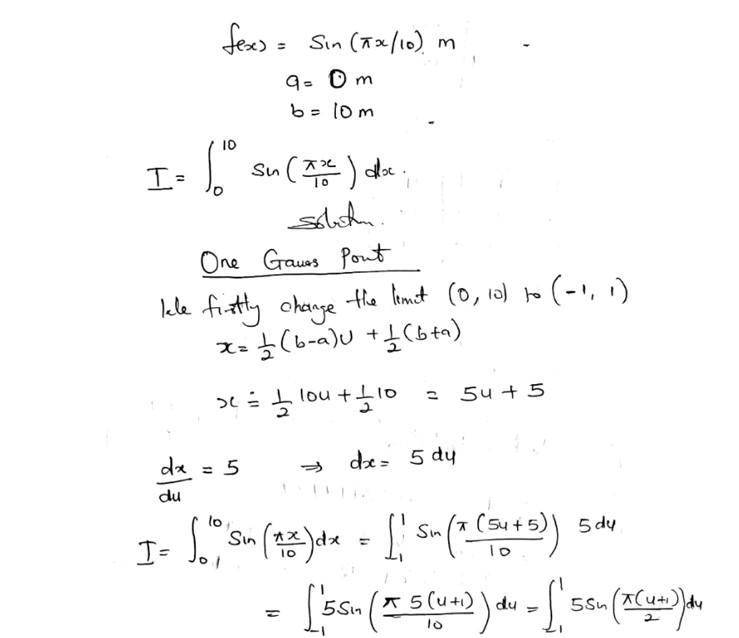 f(x) = Sin (πx/10) m
a = 0 m
b = 10 m
I = ∫₀¹⁰ Sin (πx/10) dx.
Solution.
One Gauss Point
We firstly change the limit (0, 10) to (-1, 1)
x = 1/2 (b-a)U + 1/2 (b+a)
x = 1/2 10u + 1/2 10 = 5u + 5
dx/du = 5 ⇒ dx = 5 du
I = ∫₀¹⁰ Sin (πx/10) dx = ∫₋₁¹ Sin (π (5u+5)/10) 5 du
= ∫₋₁¹ 5 Sin (π 5(u+1)/10) du = ∫₋₁¹ 5 Sin (π(u+1)/2) du